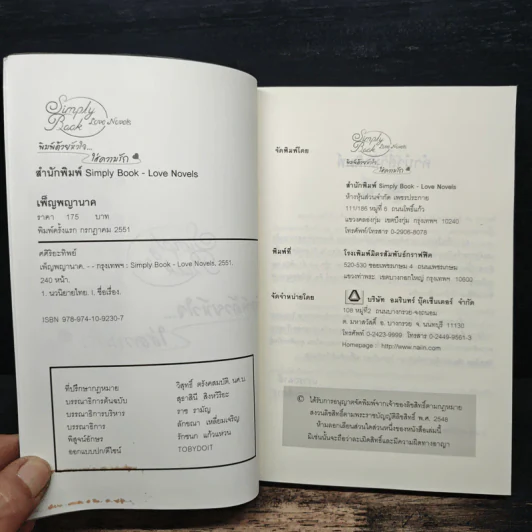 Simply Book
Love Novels
พิมพ์ด้วยหัวใจ...
ใส่ความรัก
สำนักพิมพ์ Simply Book - Love Novels
เพ็ญพญานาค
ราคา 175 บาท
พิมพ์ครั้งแรก กรกฎาคม 2551
ศศิริยะทิพย์
เพ็ญพญานาค. - - กรุงเทพฯ : Simply Book - Love Novels, 2551.
240 หน้า.
1. นวนิยายไทย. I. ชื่อเรื่อง.
ISBN 978-974-10-9230-7
ที่ปรึกษากฎหมาย วิสูทธิ์ ตรังคสมบัติ, นศ.บ.
บรรณาธิการต้นฉบับ สุธาสินี สิงหวิริยะ
บรรณาธิการบริหาร ราช รามัญ
บรรณาธิการ ลักขณา เหลี่ยมเจริญ
พิสูจน์อักษร รักชนก แก้วแหวน
ออกแบบปก/ดีไซน์ TOBYDOIT
จัดพิมพ์โดย
Simply Book
Love Novels
พิมพ์ด้วยหัวใจ...
ใส่ความรัก
สำนักพิมพ์ Simply Book - Love Novels
ห้างหุ้นส่วนจำกัด เพชรประกาย
111/186 หมู่ที่ 6 ถนนโพธิ์แก้ว
แขวงคลองกุ่ม เขตบึงกุ่ม กรุงเทพฯ 10240
โทรศัพท์/โทรสาร 0-2906-8078
พิมพ์ที่ โรงพิมพ์มิตรสัมพันธ์กราฟฟิค
520-530 ซอยเพชรเกษม 4 ถนนเพชรเกษม
แขวงท่าพระ เขตบางกอกใหญ่ กรุงเทพฯ 10600
จัดจำหน่ายโดย บริษัท อมรินทร์ บุ๊คเซ็นเตอร์ จำกัด
108 หมู่ที่2 ถนนบางกรวย-จงถนอม
ต. มหาสวัสดิ์ อ. บางกรวย จ. นนทบุรี 11130
โทรศัพท์ 0-2423-9999 โทรสาร 0-2449-9561-3
Homepage : http://www.naiin.com
© ได้รับการอนุญาตจัดพิมพ์จากเจ้าของลิขสิทธิ์ตามกฎหมาย
สงวนลิขสิทธิ์ตามพระราชบัญญัติลิขสิทธิ์ พ.ศ. 2548
ห้ามลอกเลียนส่วนใดส่วนหนึ่งของหนังสือเล่มนี้
มิเช่นนั้นจะถือว่าละเมิดลิขสิทธิ์และมีความผิดทางอาญา